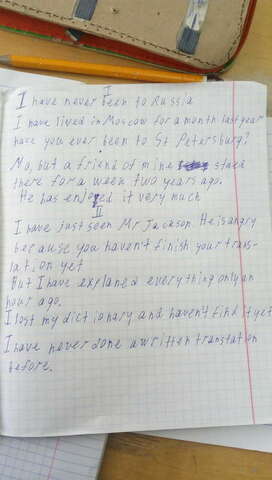 I
I have never been to Russia
I have lived in Moscow for a month last year
have you ever been to St Petersburg?
No, but a friend of mine staed
there for a week two years ago.
He has enjoed it very much
II
I have just seen Mr Jackson. He is angry
because you haven't finish your trans-
lation yet
But I have explaned everything only an
hour ago.
I lost my dictionary and haven't find it yet
I have never done a written translation
before.